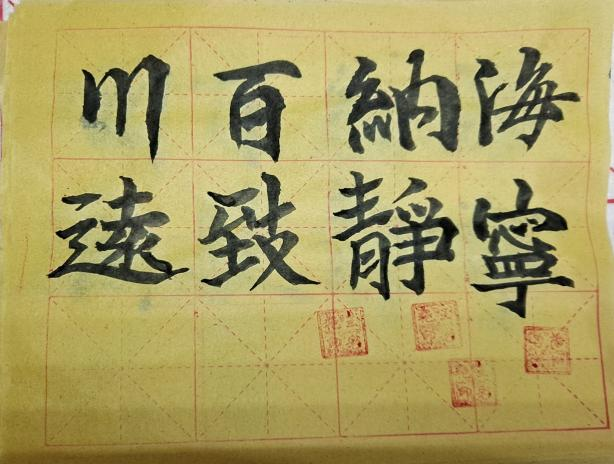 海納百川
寧靜致遠